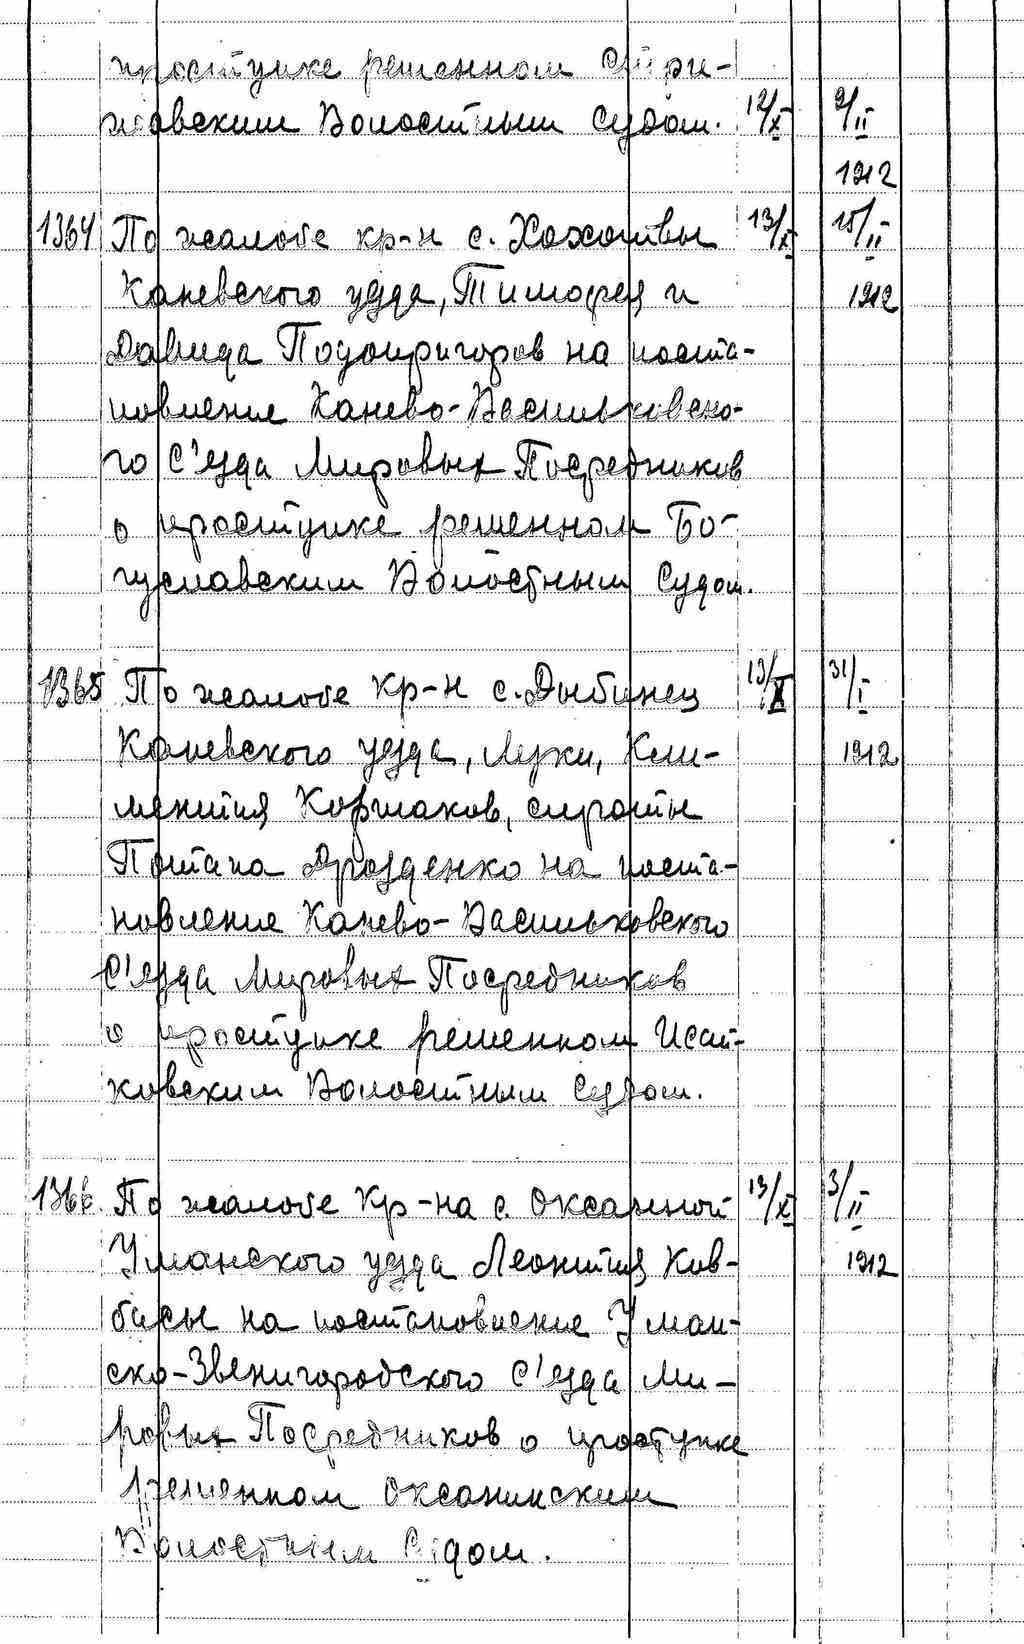 проступке решенном Стри-
жавским Волостным судом. 12/X 9/II
1912
1364 По жалобе кр-н с. Хохотвы 13/X 15/II
Каневского уезда, Тимофея и 1912
Давида Подопригоров на поста-
новление Канево-Васильковско-
го С'езда Мировых Посредников
о проступке решенном Бо-
гуславским Волостным Судом.
1365 По жалобе Кр-н с. Дыбинец 13/X 31/I
Каневского уезда, Луки, Кли- 1912
ментия Коршаков, сироты
Потапа Дрозденко на поста-
новление Канево-Васильковского
С'езда Мировых Посредников
о проступке решенном Исай-
ковским Волостным Судом.
1366. По жалобе Кр-на с. Оксаниной 13/X 3/II
Уманского уезда Леонтия Ков- 1912
басы на постановление Уман-
ско-Звенигородского С'езда Ми-
ровых Посредников о проступке
решенном Оксанинским
Волостным Судом.